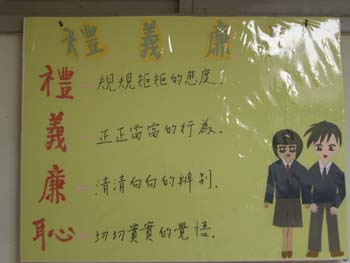 禮 義 廉
禮 - 規規矩矩的態度.
義 - 正正當當的行為.
廉 - 清清白白的辨別.
恥 - 切切實實的覺悟.